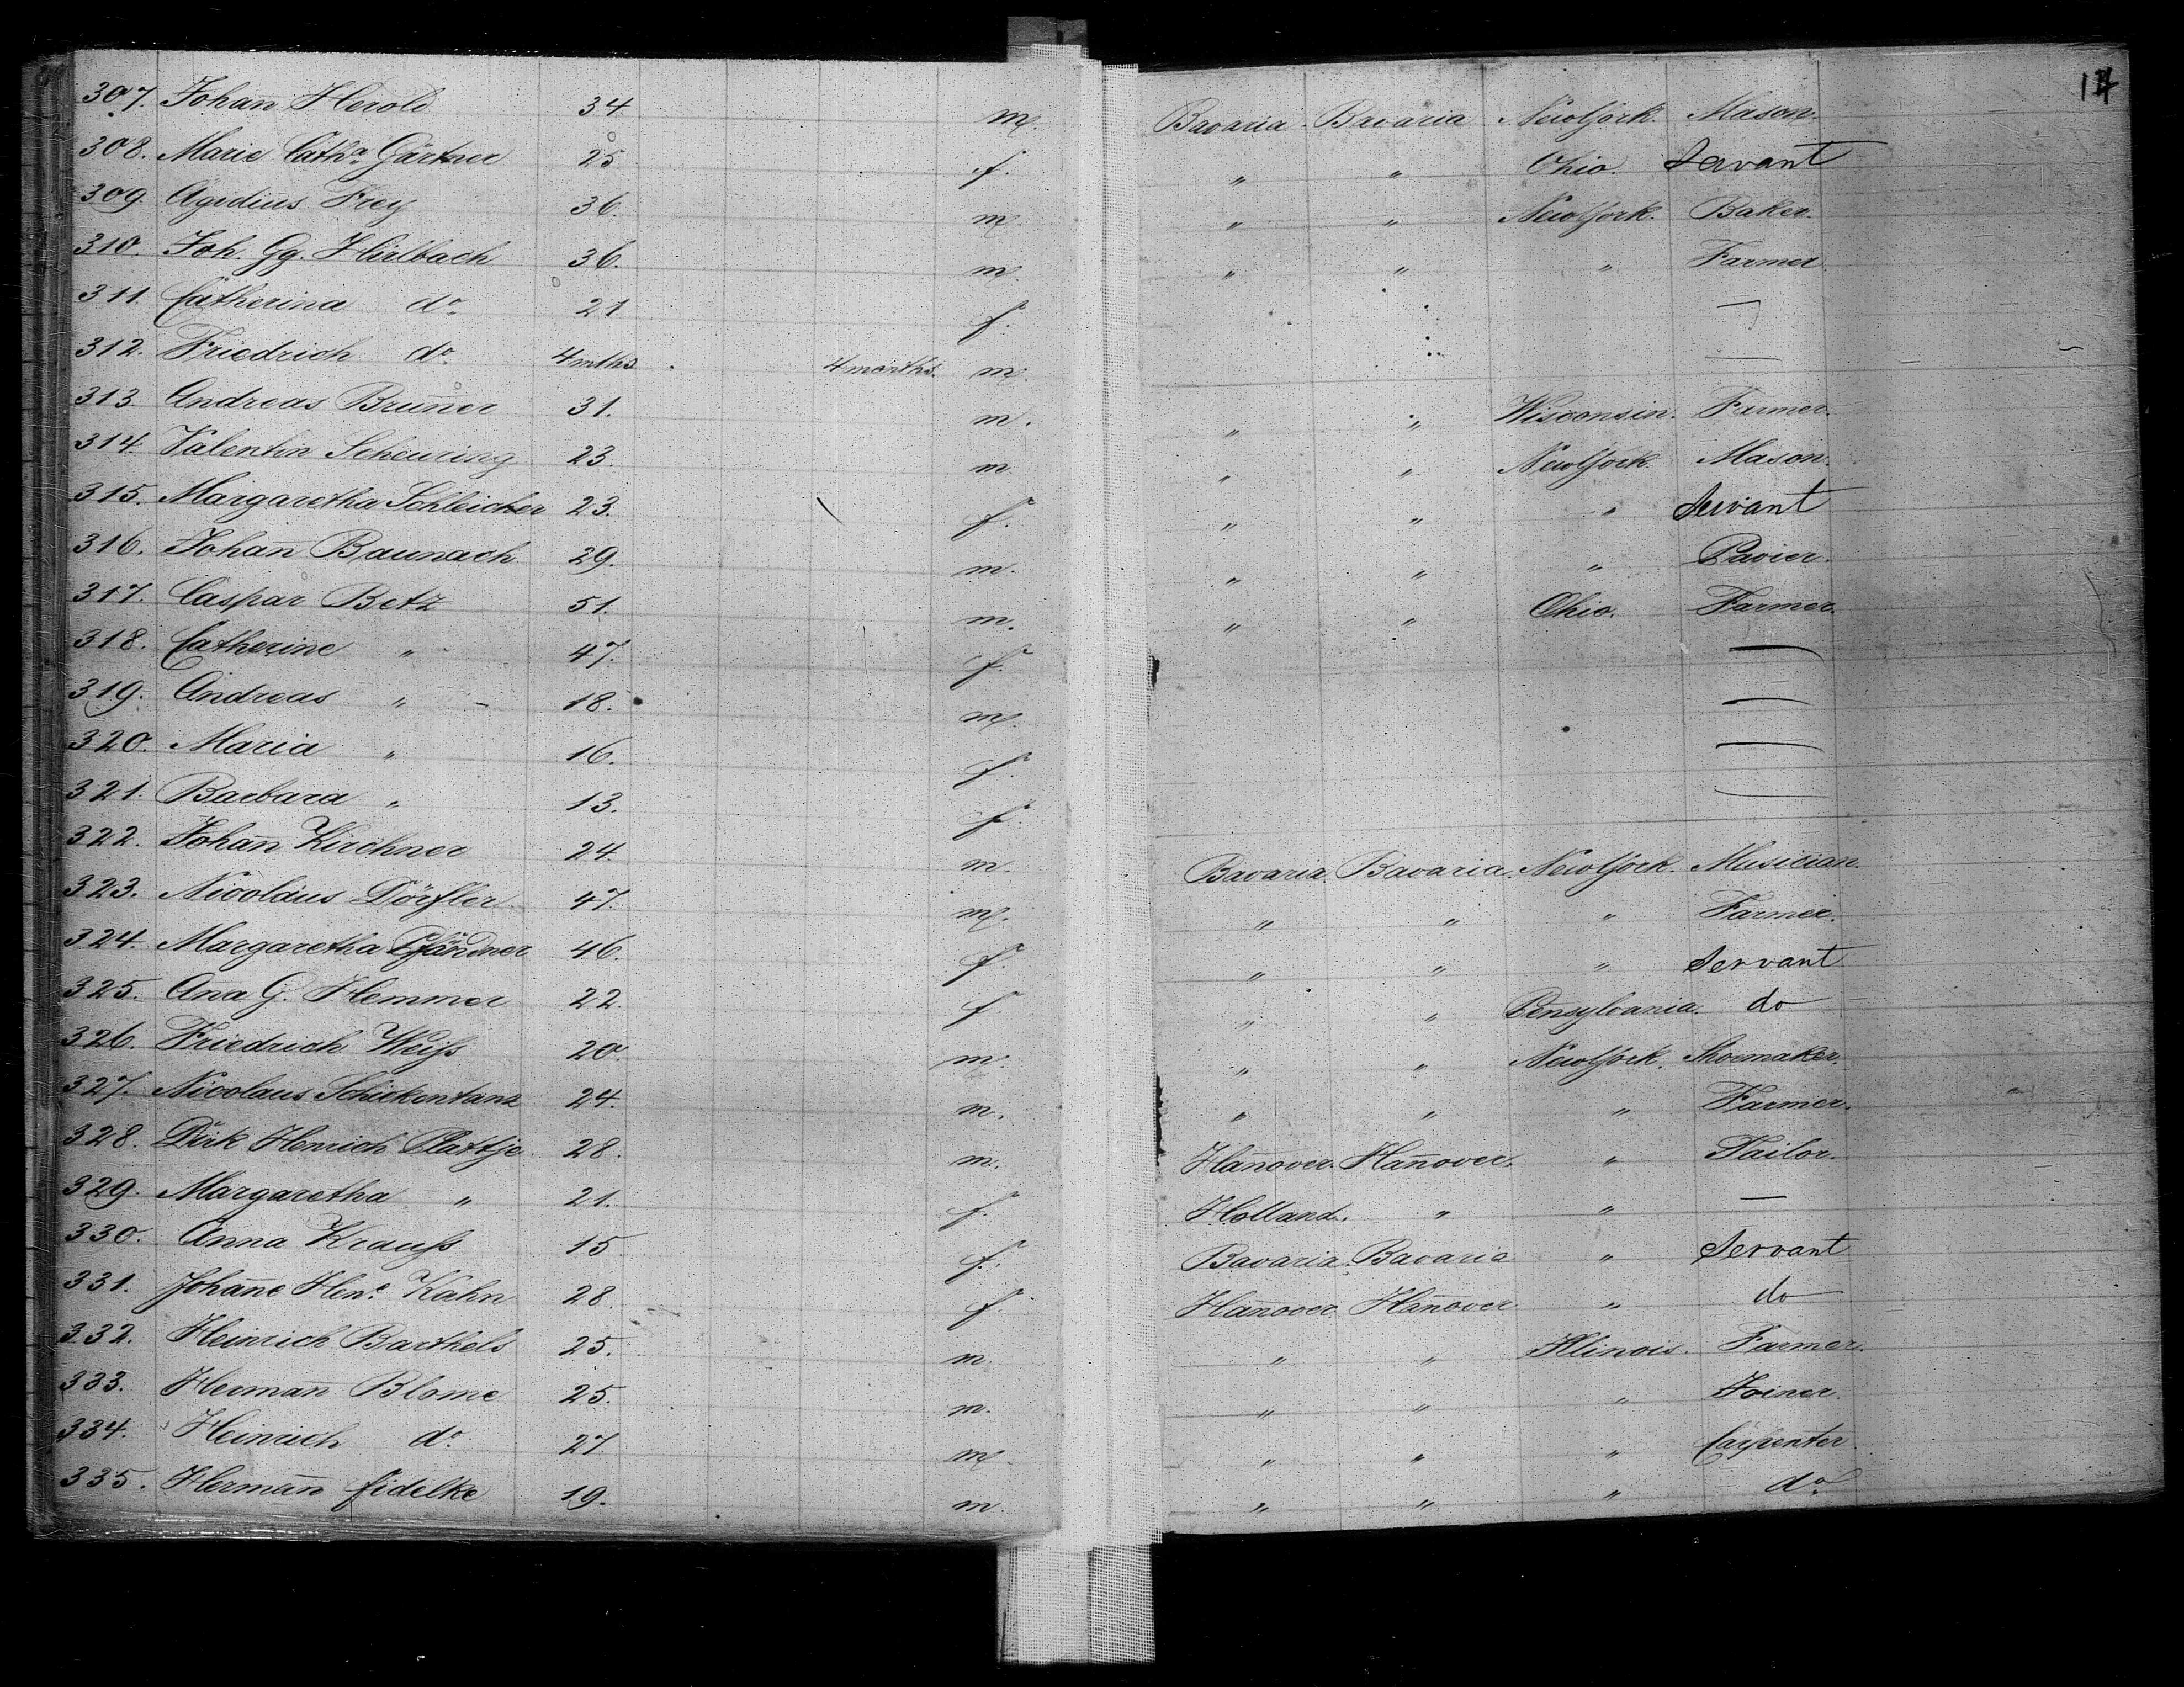 14
307. Johan̄ Herold 34. m. Bavaria. Bavaria NewYork. Mason.
308. Marie Catha. Gärtner 25 f. " " Ohio. Servant
309. Agidius Frey 36. m. " " NewYork. Baker.
310. Joh. Gg. Hirlbach 36. m. " " " Farmer
311. Catherina do. 21 f. —
312. Friedrich do. 4 mths. 4 months. m. —
313. Andreas Brun̄er 31. m. " " Wisconsin. Farmer.
314. Valentin Scheuring 23. m " " NewYork. Mason.
315. Margaretha Schleicher 23. f. " " " Servant
316. Johan̄ Baunach 29. m. " " " Pavier.
317. Caspar Betz 51. m. " " Ohio. Farmer.
318. Catherine " 47. f. —
319. Andreas " 18. m. —
320. Maria " 16. f. —
321. Barbara " 13. f. —
322. Johan̄ Kirchner 24. m. Bavaria. Bavaria. NewYork. Musician.
323. Nicolaus Dörfler 47. m. " " " Farmer.
324. Margaretha 46. f. " " " Servant
325. An̄a G. Hemmer 22. f. " " Pen̄sylvania. do
326. Friedrich Weiſs 20. m. " " NewYork. Shoemaker.
327. Nicolaus Schickentanz 24. m. " " " Farmer.
328. Dirk Henrich Plattje 28. m. Han̄over. Han̄over. " Tailor.
329. Margaretha " 21. f. Holland. " " —
330. Anna Krauſs 15 f. Bavaria. Bavaria " Servant
331. Johan̄e Hene. Kahn 28. f. Han̄over. Han̄over " do
332. Heinrich Barthels 25. m. " " Illinois. Farmer.
333. Herman̄ Blome 25. m. " " " Joiner.
334. Heinrich do. 27 m. " " " Carpenter
335. Herman̄ fidelke 19. m. " " " do.